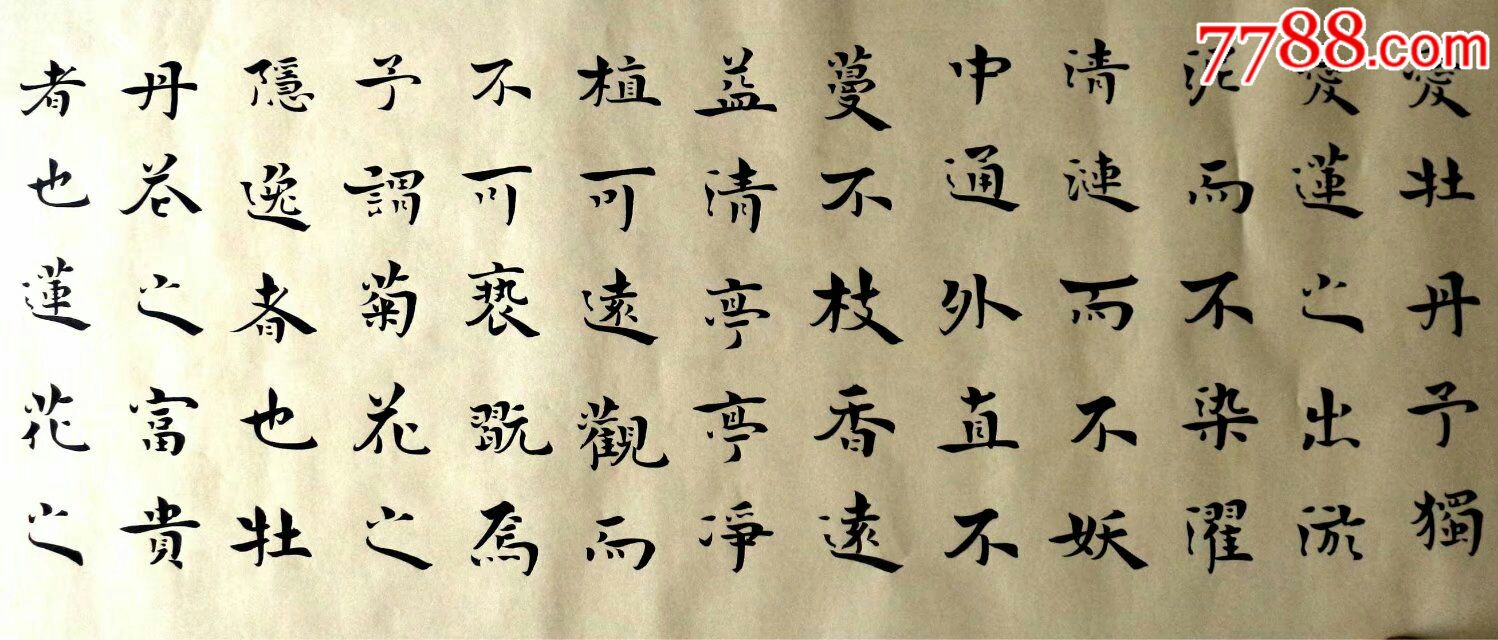 愛牡丹予獨
愛蓮之出淤
泥而不染濯
清漣而不妖
中通外直不
蔓不枝香遠
益清亭亭淨
植可遠觀而
不可亵翫焉
予謂菊花之
隱逸者也牡
丹花之富貴
者也蓮花之
7788.com